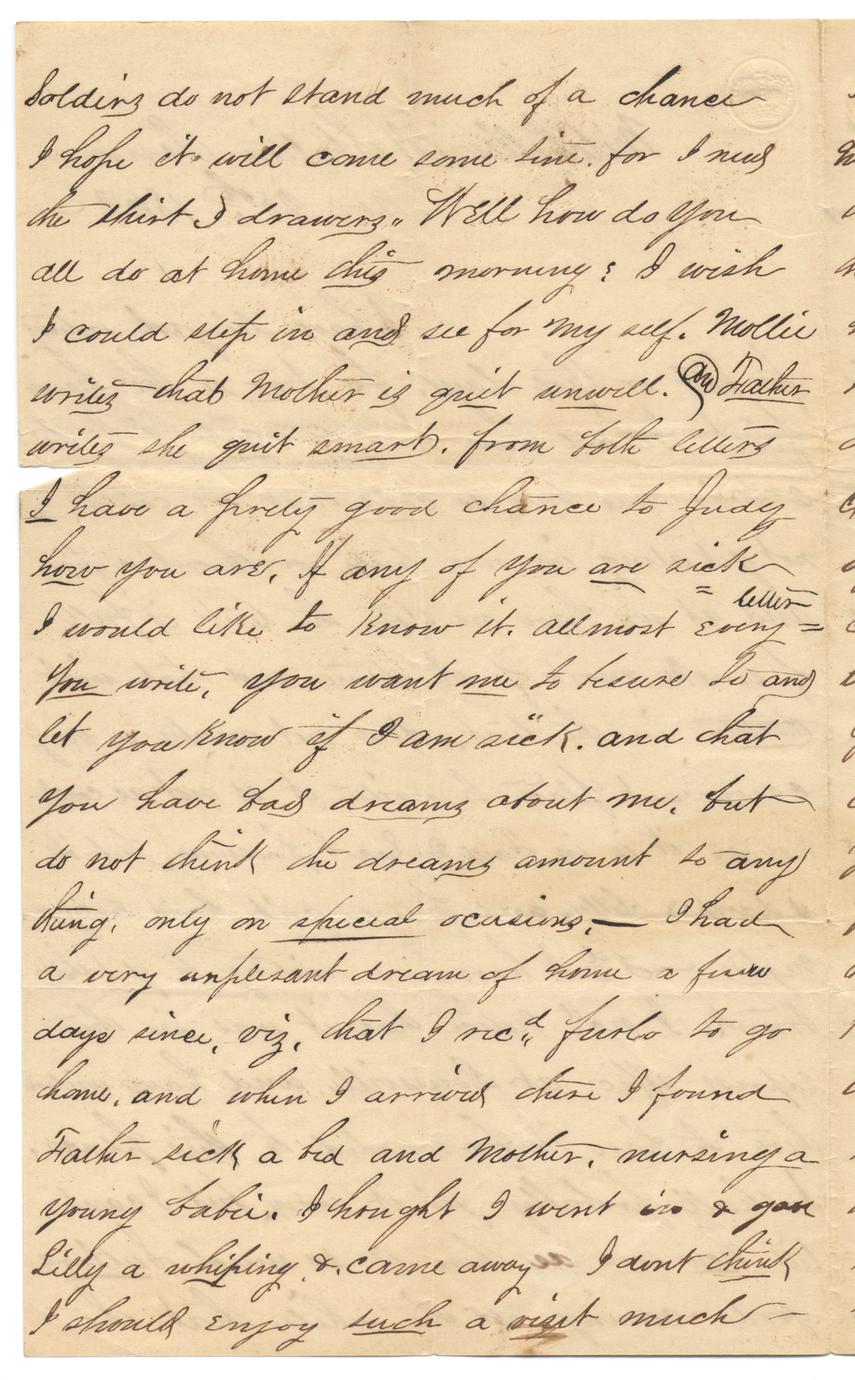 Soldirs do not stand much of a chance
I hope it will come some time. for I need
the shirt & drawers. Well how do you
all do at home this morning; I wish
I could step in and see for my self. Mollie
writes that Mother is quit unwell. and Father
writes she quit smart. from both letters
I have a prety good chance to Judg
how you are. If any of you are sick
I would like to know it. allmost every =
letter
you write, you want me to besure to and
let you know if I am sick. and that
you have bad dreams about me. but
do not think the dreams amount to any
thing. only on special ocasions. — I had
a very unplesant dream of home a few
days since, viz, that I recd furlo to go
home, and when I arrived there I found
Father sick a bed and Mother, nursing a
young babie. I thought I went in & gave
Lilly a whiping & came away I dont think
I should enjoy such a visit much —